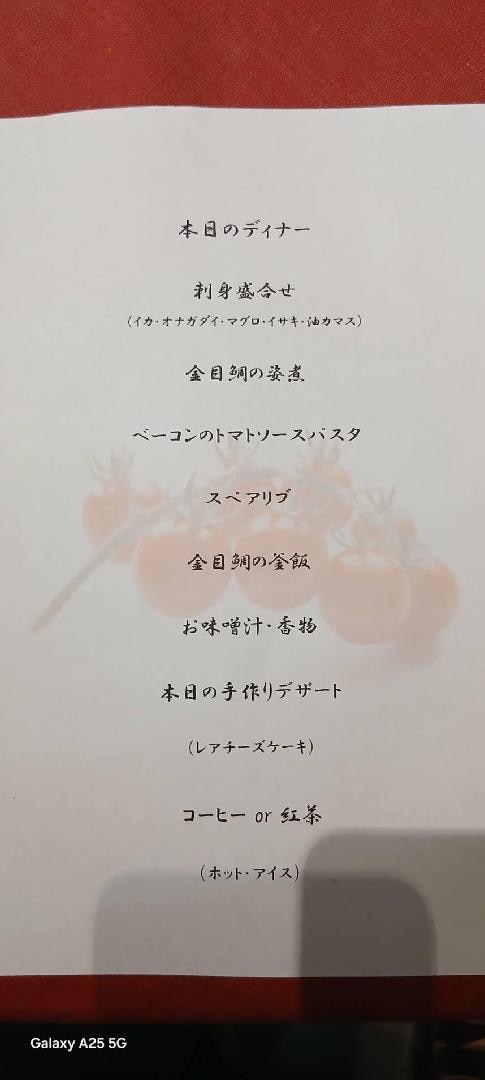 本日のディナー
刺身盛合せ
(イカ・オナガダイ・マグロ・イサキ・油カマス)
金目鯛の姿煮
ベーコンのトマトソースパスタ
スペアリブ
金目鯛の釜飯
お味噌汁・香物
本日の手作りデザート
(レアチーズケーキ)
コーヒー or 紅茶
(ホット・アイス)
Galaxy A25 5G